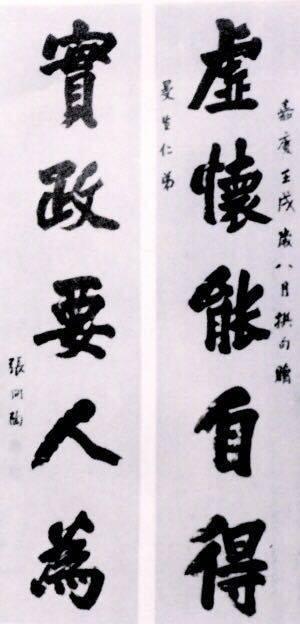 嘉慶壬戌歲八月撰句贈
虛懷能自得
曼生仁弟
實政要人為
張問陶